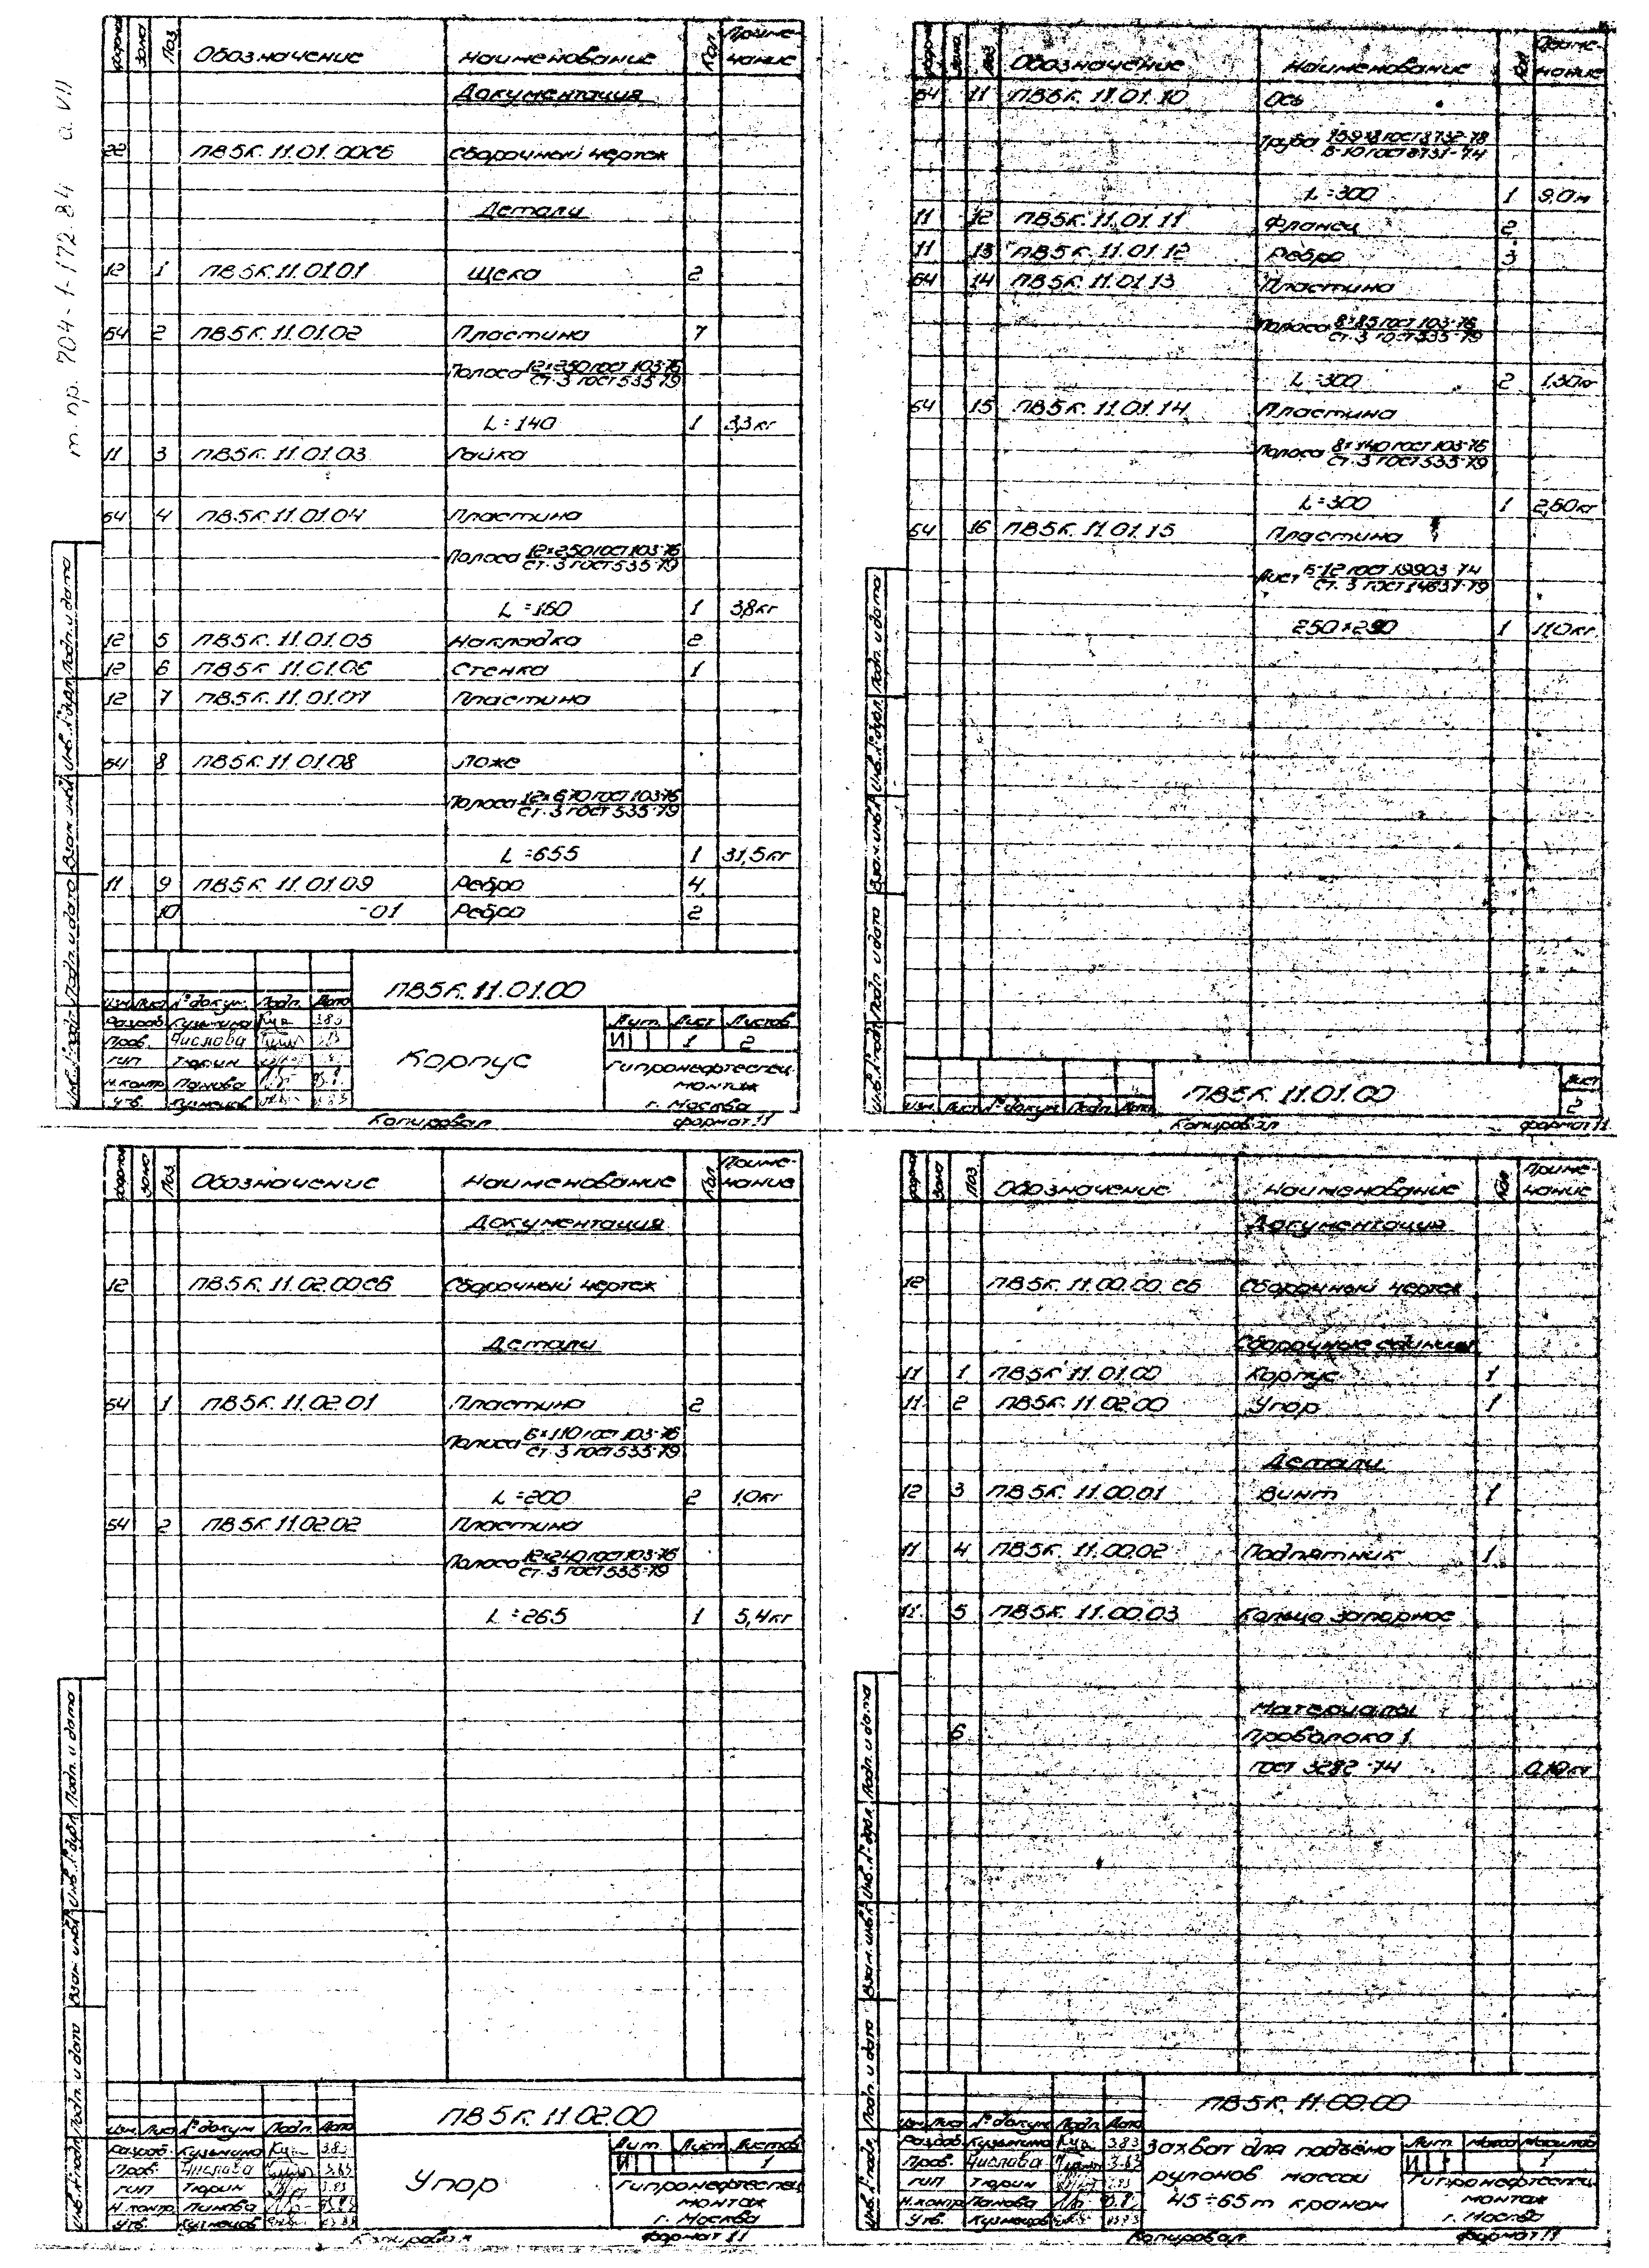 т. пр. 704-1-172.84 а. VII
формат Зона Поз. Обозначение Наименование Кол Приме-чание
Документация
22 ПВ5К.11.01.00СБ Сборочный чертеж
Детали
12 1 ПВ5К.11.01.01 Щека 2
64 2 ПВ5К.11.01.02 Пластина 7
Полоса 12×250 гост 103-76
Ст. 3 гост 535-79
L=140 1 3,3 кг
11 3 ПВ5К.11.01.03 Гайка
64 4 ПВ5К.11.01.04 Пластина
Полоса 12×250 гост 103-76
Ст. 3 гост 535-79
L=160 1 3,8 кг
12 5 ПВ5К.11.01.05 Накладка 2
12 6 ПВ5К.11.01.06 Стенка 1
12 7 ПВ5К.11.01.07 Пластина
64 8 ПВ5К.11.01.08 Ложе
Полоса 12×670 гост 103-76
Ст. 3 гост 535-79
L=655 1 31,5 кг
11 9 ПВ5К.11.01.09 Ребро 4
10 -01 Ребро 2
ПВ5К.11.01.00
Изм. Лист № докум. Подп. Дата
Разраб. Кузьмина 3.83
Пров. Числова
ГИП Тюрин
Н.контр. Панова
Утв. Кузнецов
Корпус
Лит. Лист Листов
И 1 2
Гипронефтеспец-
монтаж
г. Москва
Копировал формат 11
Инв. № подл. Подп. и дата Взам. инв. № Инв. № дубл. Подп. и дата
формат Зона Поз Обозначение Наименование Кол Приме-чание
64 11 ПВ5К.11.01.10 Ось
Труба 159×8 гост 8732-78
В-10 гост 8731-74
L=300 1 9,0 м
11 12 ПВ5К.11.01.11 Фланец 2
11 13 ПВ5К.11.01.12 Ребро 3
64 14 ПВ5К.11.01.13 Пластина
Полоса 8×85 гост 103-76
Ст. 3 гост 535-79
L=300 2 1,30 кг
64 15 ПВ5К.11.01.14 Пластина
Полоса 8×140 гост 103-76
Ст. 3 гост 535-79
L=300 1 2,60 кг
64 16 ПВ5К.11.01.15 Пластина
Лист Б-12 гост 19903-74
Ст. 3 гост 14637-79
250×290 1 11,0 кг
Изм. Лист № докум. Подп. Дата
ПВ5К.11.01.00
Лист
2
Копировал формат 11
Инв. № подл. Подп. и дата Взам. инв. № Инв. № дубл. Подп. и дата
формат Зона Поз. Обозначение Наименование Кол Приме-чание
Документация
12 ПВ5К.11.02.00СБ Сборочный чертеж
Детали
64 1 ПВ5К.11.02.01 Пластина 2
Полоса 6×110 гост 103-76
Ст. 3 гост 535-79
L=200 2 1,0 кг
64 2 ПВ5К.11.02.02 Пластина
Полоса 12×240 гост 103-76
Ст. 3 гост 535-79
L=265 1 5,4 кг
ПВ5К.11.02.00
Изм. Лист № докум Подп. Дата
Разраб. Кузьмина 3.83
Пров. Числова 3.83
ГИП Тюрин 3.83
Н.контр. Панова
Утв. Кузнецов
Упор
Лит. Лист Листов
И 1
Гипронефтеспец-
монтаж
г. Москва
Копировал формат 11
Инв. № подл. Подп. и дата Взам. инв. № Инв. № дубл. Подп. и дата
формат Зона Поз Обозначение Наименование Кол Приме-чание
Документация
12 ПВ5К.11.00.00 СБ Сборочный чертеж
Сборочные единицы
11 1 ПВ5К.11.01.00 Корпус 1
11 2 ПВ5К.11.02.00 Упор 1
Детали
12 3 ПВ5К.11.00.01 Винт 1
11 4 ПВ5К.11.00.02 Подпятник 1
11 5 ПВ5К.11.00.03 Кольцо запорное
Материалы
6 Проволока 1
гост 3282-74
ПВ5К.11.00.00
Изм. Лист № докум Подп. Дата
Разраб. Кузьмина 3.83
Пров. Числова
ГИП Тюрин
Н.контр. Панова
Утв. Кузнецов
Захват для подъёма
рулонов массой
45÷65т краном
Лит. Масса Масштаб
И 1
Гипронефтеспец-
монтаж
г. Москва
Копировал формат 11
Инв. № подл. Подп. и дата Взам. инв. № Инв. № дубл. Подп. и дата